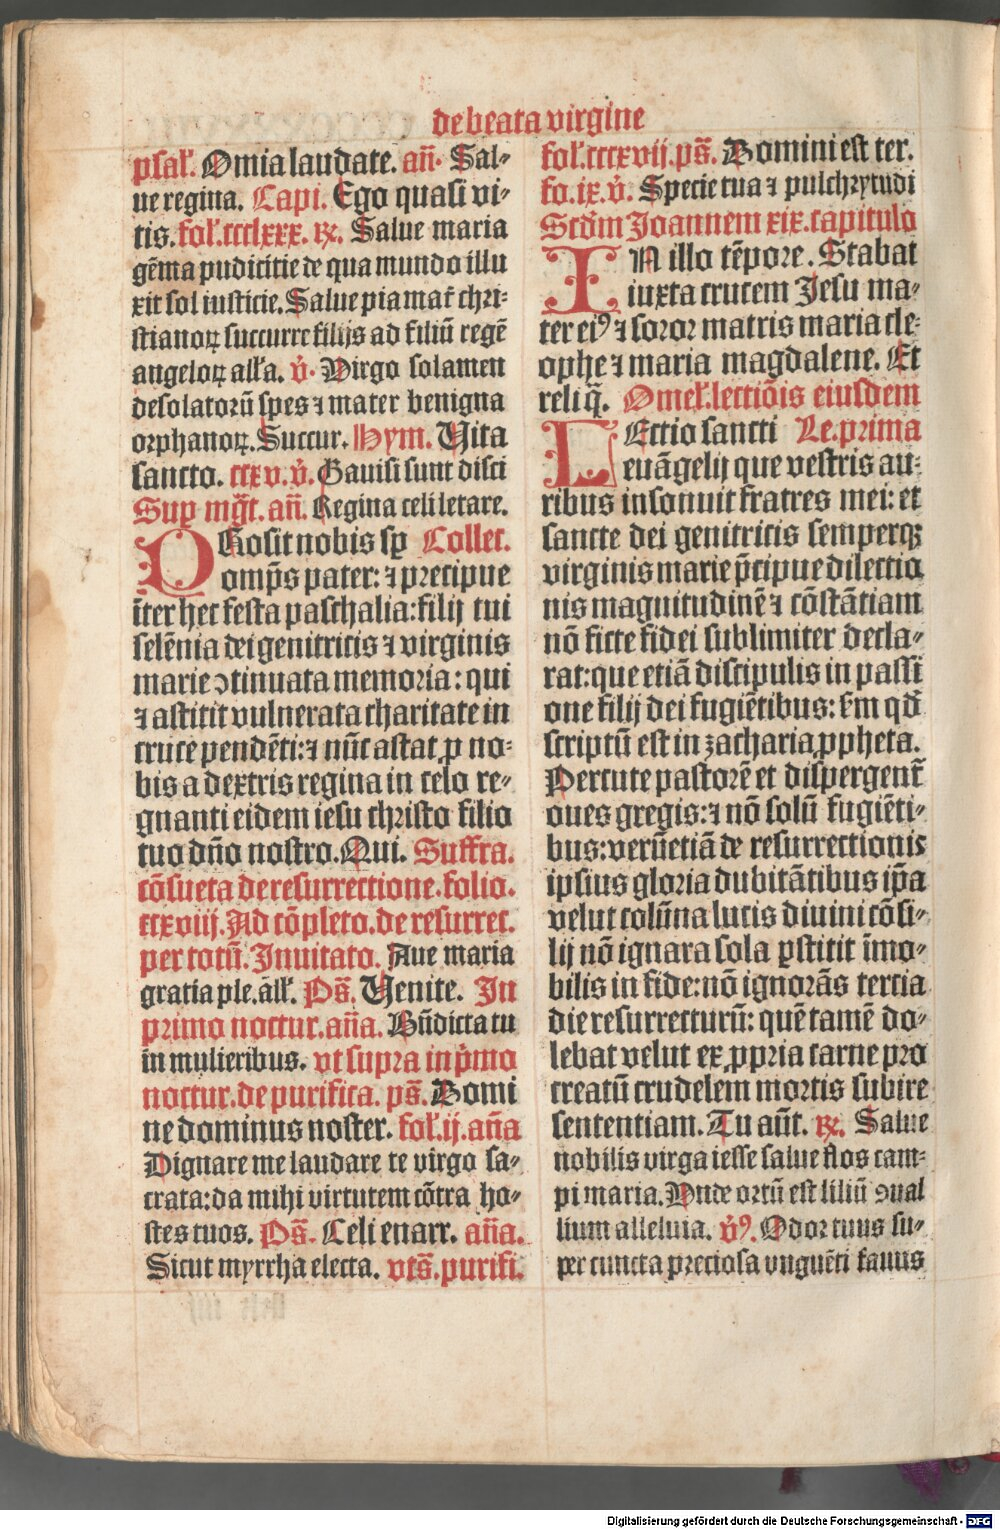 de beata virgine
psal̄. Omia laudate. an̄. Sal⸗
ue regina. Capi. Ego quasi vi⸗
tis. fol̄. ccclxxx. ꝶ. Salue maria
gēma pudicitie de qua mundo illu
xit sol iusticie. Salue pia mar̄ chri⸗
stianoꝝ succurre filijs ad filiū regē
angeloꝝ all̄a. v̇. Virgo solamen
desolatorū spes ⁊ mater benigna
orphanoꝝ. Succur. Hym. Vita
sancto. ccxv. v̇. Gauisi sunt disci
Sup mḡt. an̄. Regina celi letare.
PRosit nobis sp̄ Collec.
omp̄s pater: ⁊ precipue
īter hec festa paschalia: filij tui
selēnia dei genitricis ⁊ virginis
marie ↄtinuata memoria: qui
⁊ astitit vulnerata charitate in
cruce pendēti: ⁊ nūc astat ꝓ no⸗
bis a dextris regina in celo re⸗
gnanti eidem iesu christo filio
tuo dn̄o nostro. Qui. Suffra.
cōsueta de resurrectione. folio.
ccxviij. Ad cōpleto. de resurrec.
per totū. Inuitato. Aue maria
gratia ple. āll̄. Ps̄. Venite. In
primo noctur. an̄a. Bn̄dicta tu
in mulieribus. vt supra in pͥmo
noctur. de purifica. ps̄. Domi
ne dominus noster. fol̄. ij. an̄a
Dignare me laudare te virgo sa⸗
crata: da mihi virtutem cōtra ho⸗
stes tuos. Ps̄. Celi enarr. an̄a.
Sicut myrrha electa. vts̄. purifi.
fol̄. cccxvij. ps̄. Domini est ter.
fo. ix. v̇. Specie tua ⁊ pulchrytudi
Scdm̄ Joannem xix. capitulo
IN illo tēpore. Stabat
iuxta crucem Jesu ma⸗
ter eiꝰ ⁊ soror matris maria cle⸗
ophe ⁊ maria magdalene. Et
reliq̄. Omel̄. lectiōis eiusdem
LEctio sancti Le. prima
euāgelij que vestris au⸗
ribus insonuit fratres mei: et
sancte dei genitricis semperqꝫ
virginis marie p̄cipue dilectio
nis magnitudinē ⁊ cōstātiam
nō ficte fidei sublimiter decla⸗
rat: que etiā discipulis in passi
one filij dei fugiētibus: s̄m qd̄
scriptū est in zacharia ꝓpheta.
Percute pastorē et dispergent̄
oues gregis: ⁊ nō solū fugiēti⸗
bus: verūetiā de resurrectionis
ipsius gloria dubitātibus ip̄a
velut colūna lucis diuini cōsi⸗
lij nō ignara sola ꝑstitit īmo⸗
bilis in fide: nō ignorās tertia
die resurrecturū: quē tamē do⸗
lebat velut ex ꝓpria carne pro
creatū crudelem mortis subire
sententiam. Tu aūt. ꝶ. Salue
nobilis virga iesse salue flos cam⸗
pi maria. Vnde ortū est liliū ↄual
lium alleluia. v̇ꝰ. Odor tuus su⸗
per cuncta preciosa vnguēti fauus
Digitalisierung gefördert durch die Deutsche Forschungsgemeinschaft - DFG